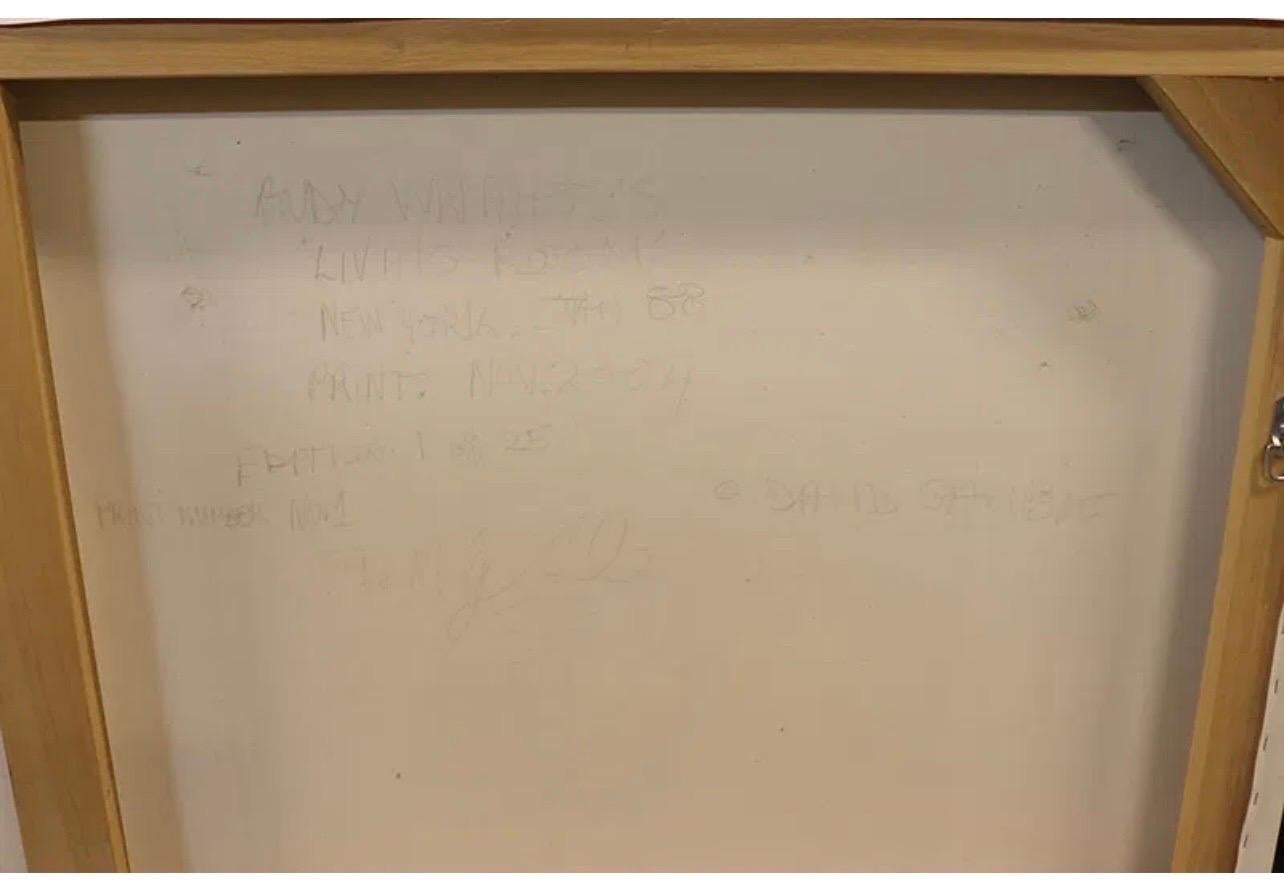 ANDY WARHOL'S
'LIVING ROOM'
NEW YORK. JAN 88
PRINT. NOV. 2004
EDITION. 1 OF 25
PRINT NUMBER NO.1
© DAVID GAMBLE